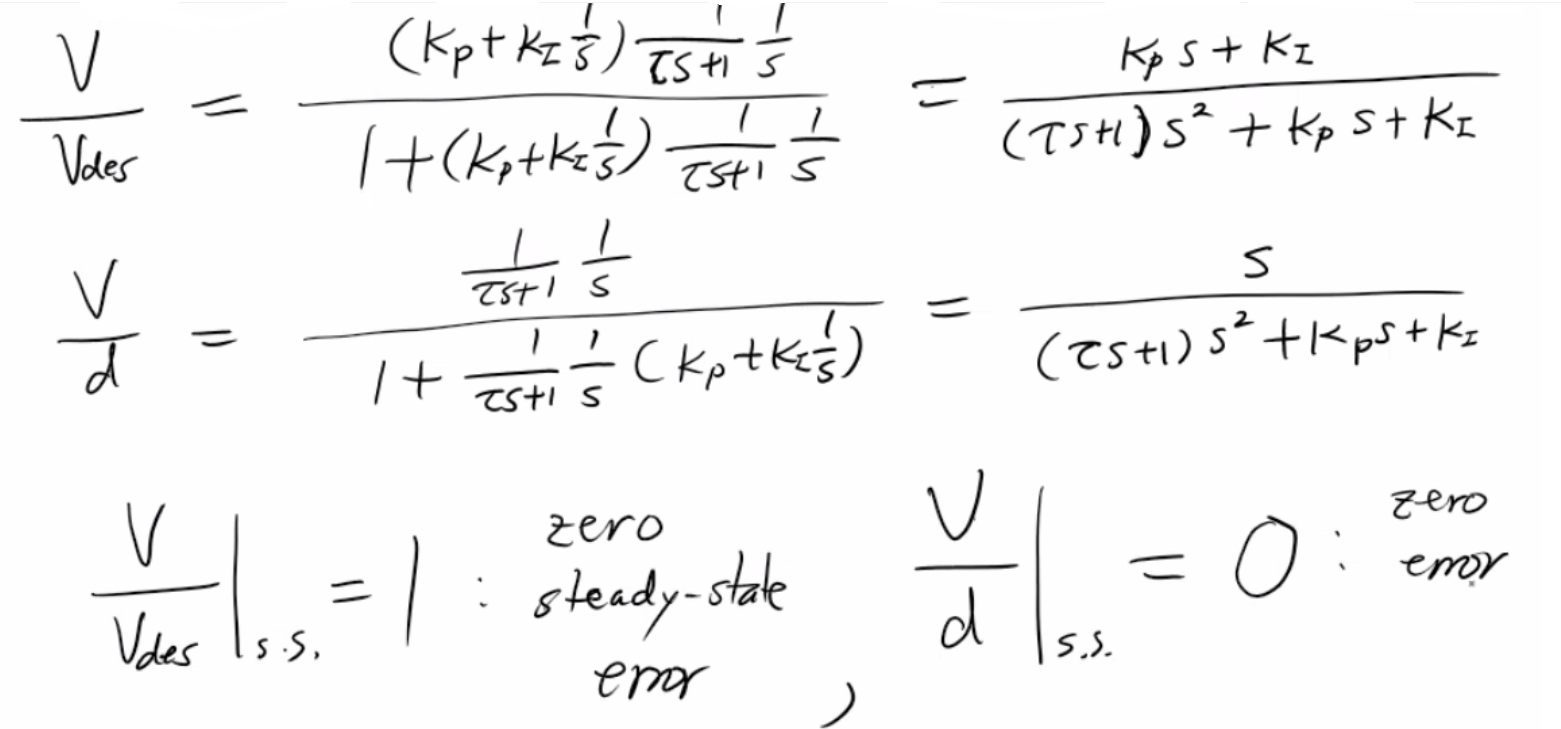 V/V_des = ((K_P + K_I 1/s) 1/(τs+1) 1/s) / (1 + (K_P + K_I 1/s) 1/(τs+1) 1/s) = (K_P s + K_I) / ((τs+1)s² + K_P s + K_I)
V/d = (1/(τs+1) 1/s) / (1 + 1/(τs+1) 1/s (K_P + K_I 1/s)) = s / ((τs+1) s² + K_P s + K_I)
V/V_des |_s.s. = 1 : zero steady-state error , V/d |_s.s. = 0 : zero error